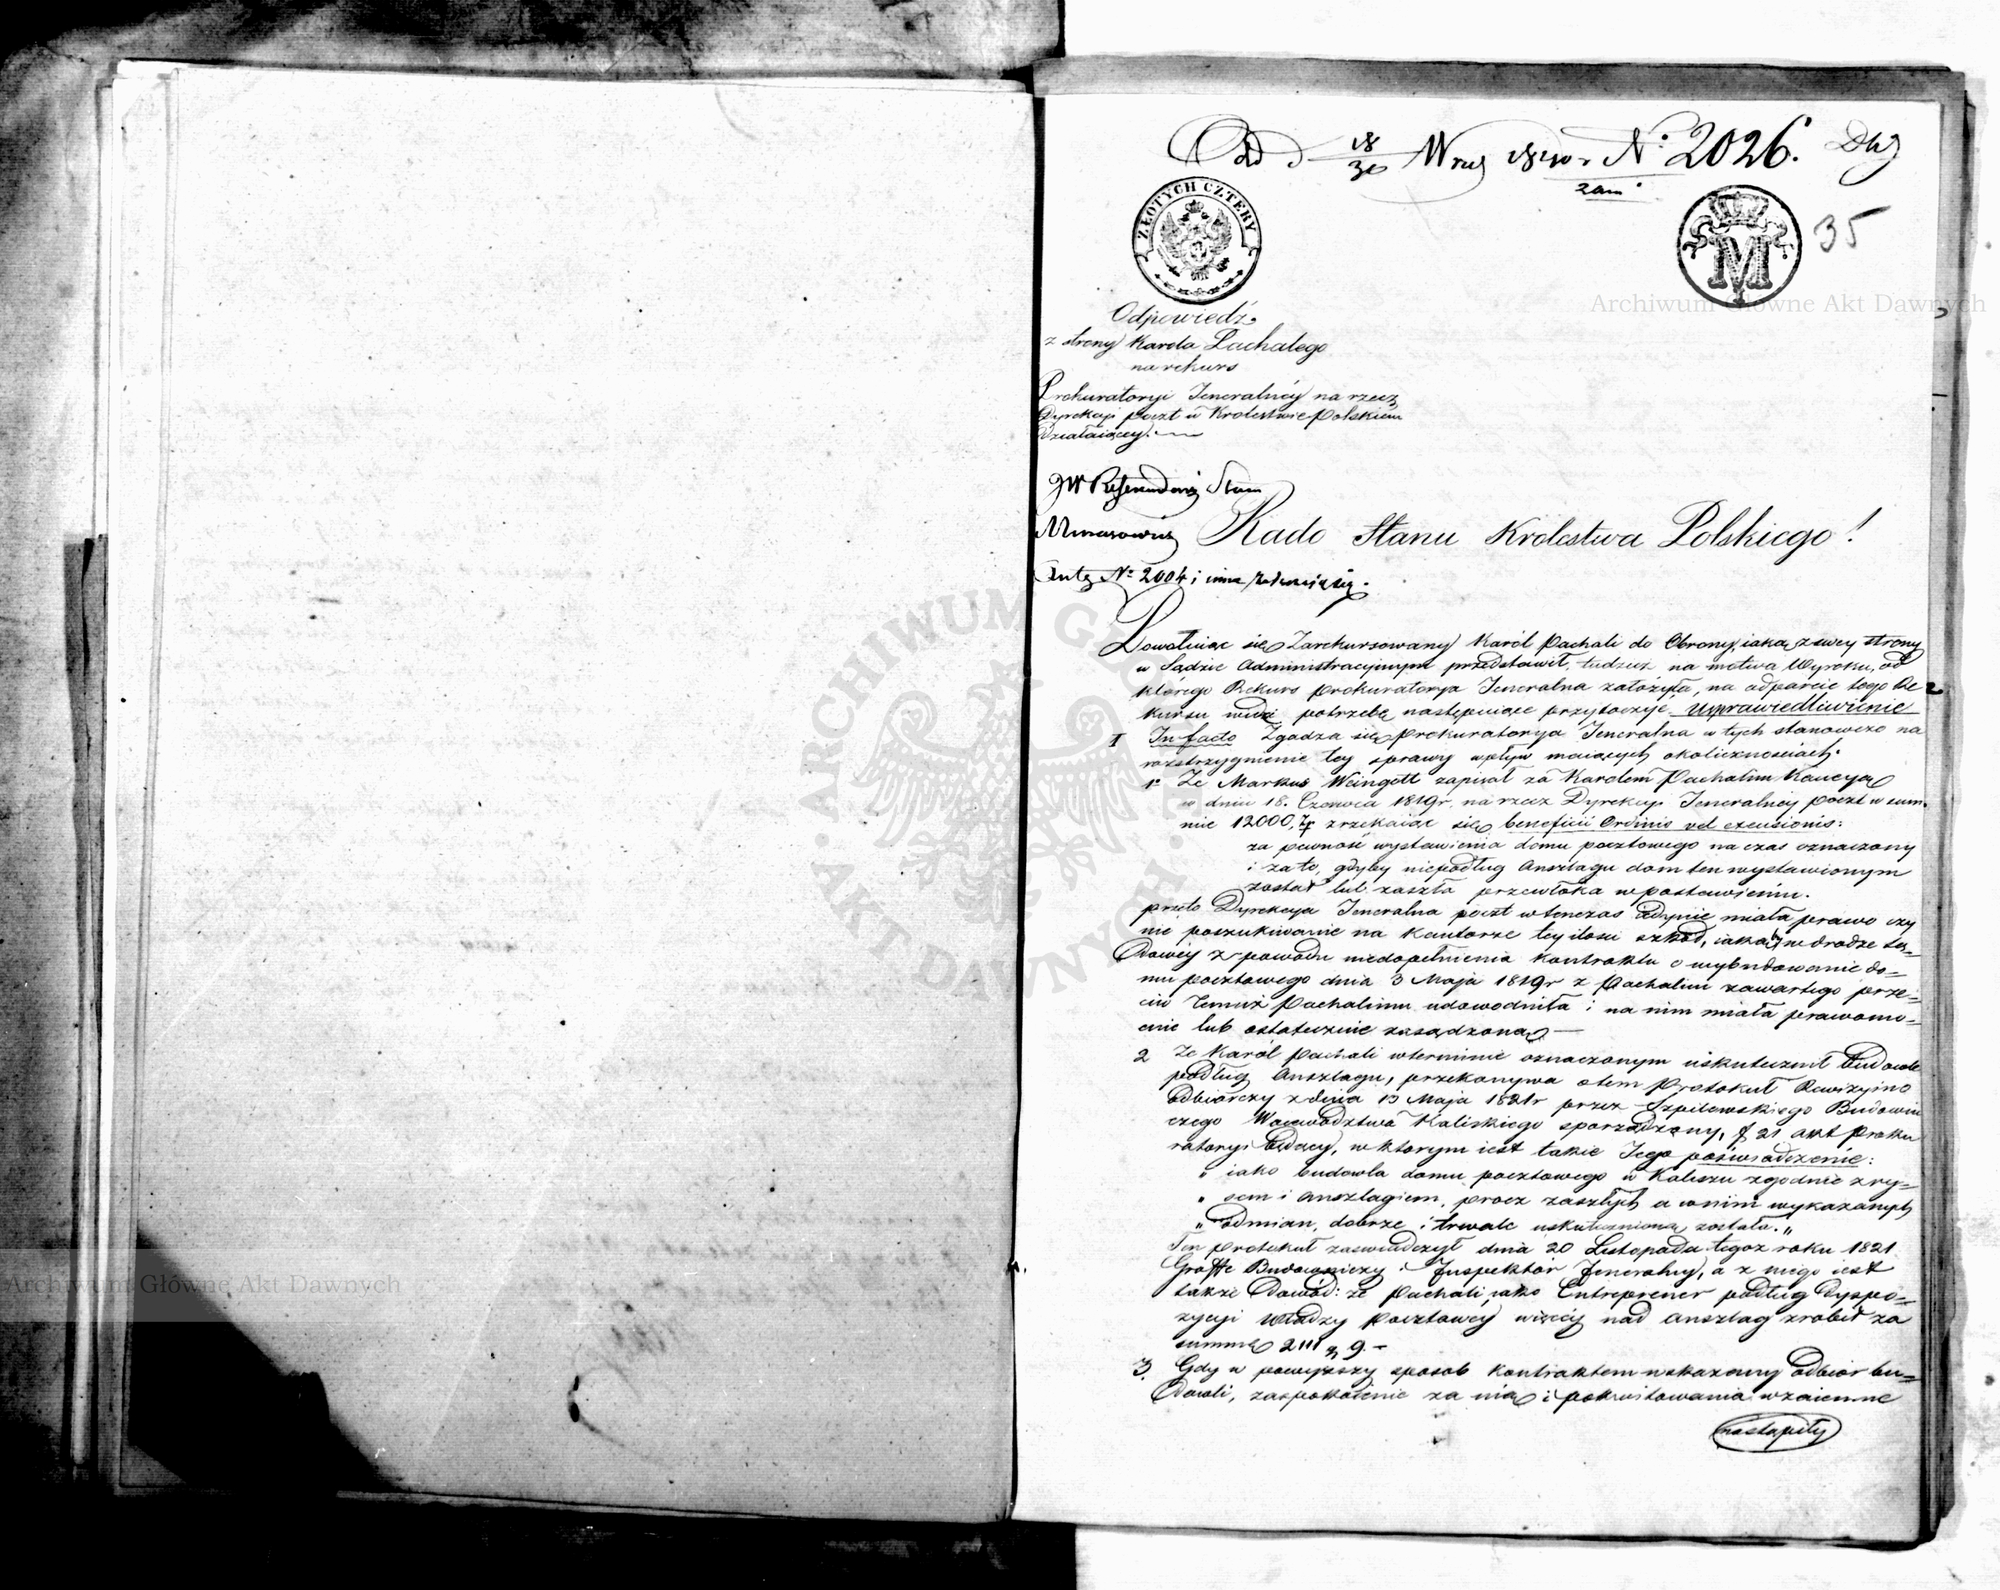 N: 2026.
ZŁOTYCH CZTERY
M
35
Archiwum Główne Akt Dawnych
Odpowiedź
z strony Karola Pachalego
na rekurs
Prokuratoryi Jeneralnéy na rzecz
Dyrekcyi poczt w Krolestwie Polskiém
Działaiącey.
JW Referendarz Stanu
Minasowicz
Rado Stanu Królestwa Polskiego!
N: 2004 i inne
Powołuiąc się Zarekursowany Karól Pachali do Obrony, iaką z swey strony
w Sądzie Administracyinym przedstawił, tudzież na motiva Wyroku, od
którego Rekurs prokuratorya Jeneralna założyła, na odparcie tego Re
kursu widzi potrzebę następuiące przytoczyć usprawiedliwienie
I In facto Zgadza się Prokuratorya Jeneralna w tych stanowczo na
rozstrzygnienie tey sprawy wpływ maiących okolicznościach.
1º Że Markus Weingott zapisał za Karolem Pachalim Kaucyą
w dniu 18. Czerwca 1819r. na rzecz Dyrekcyi Jeneralnéy poczt w sum-
mie 12000 Zł zrzekaiąc się beneficii Ordinis vel excusionis:
za pewność wystawienia domu pocztowego na czas oznaczony
i za to, gdyby niepodług Anszlagu dom ten wystawionym
został lub zaszła przewłoka w postawieniu.
przeto Dyrekcya Jeneralna poczt wtenczas iedynie miała prawo czy
nić poszukiwanie na Kautorze tey ilości szkód, iakąby w drodze są-
dowéy z powodu niedopełnienia Kontraktu o wybudowanie do-
mu pocztowego dnia 3 Maja 1819r z Pachalim zawartego prze-
ciw Temuż Pachalimu udowodniła i na nim miała prawomo-
cnie lub ostatecznie zasądzoną —
2 Że Karól Pachali w terminie oznaczonym uskutecznił Budowle
podług Anszlagu, przekonywa o tem Protokuł Rewizyino
odbiorczy z dnia 13 Maja 1821r przez Szpilewskiego Budowni
czego Woiewództwa Kaliskiego sporządzony, f 21 akt Proku
ratoryi będący, w którym iest takie Jego poświadczenie:
„ iako budowla domu pocztowego w Kaliszu zgodnie z ry-
„ sem i anszlagiem, procz zaszłych a w nim wykazanych
„ odmian, dobrze i trwale uskutecznioną została. „
Ten protokuł zaświadczył dnia 20 Listopada tegoż roku 1821
Groffe Budowniczy i Inspektór Jeneralny, a z niego iest
także Dowód: że Pachali, iako Entreprener podług Dyspo-
zycyi władzy Pocztowéy więcéy nad anszlag zrobił za
summę 2111 g 9. -
3. Gdy w powyższy sposób Kontraktem wskazany odbiór bu-
dowli, zaspokoienie za nią i pokwitowania wzaiemne
nastąpiły
ARCHIWUM GŁÓWNE AKT DAWNYCH
Archiwum Główne Akt Dawnych